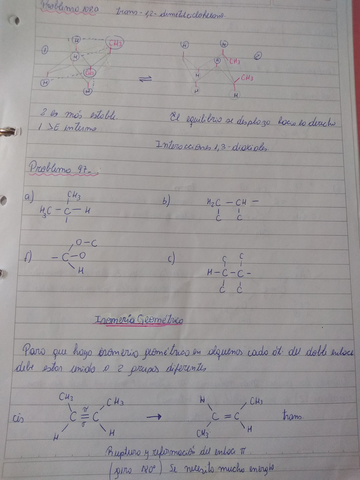 Problema
trans-1,2-dimetilciclohexano
H
CH3
H
CH3
⇌
H
CH3
CH3
H
2 es más estable
1 >E interna
El equilibrio se desplaza hacia la derecha
Interacciones 1,3-diaxiales
Problema 97.-
a)
CH3
H3C - C - H
b)
H2C - CH -
C C
f)
O - C
- C - O
H
c)
C C
H - C - C -
C C
Isomería Geométrica
Para que haya isomería geométrica en alquenos cada át del doble enlace
debe estar unido a 2 grupos diferentes
cis
CH3 CH3
C = C
H H
→
H CH3
C = C
CH3 H
trans
Ruptura y reformación del enlace π
(giro 180°) Se necesita mucha energía